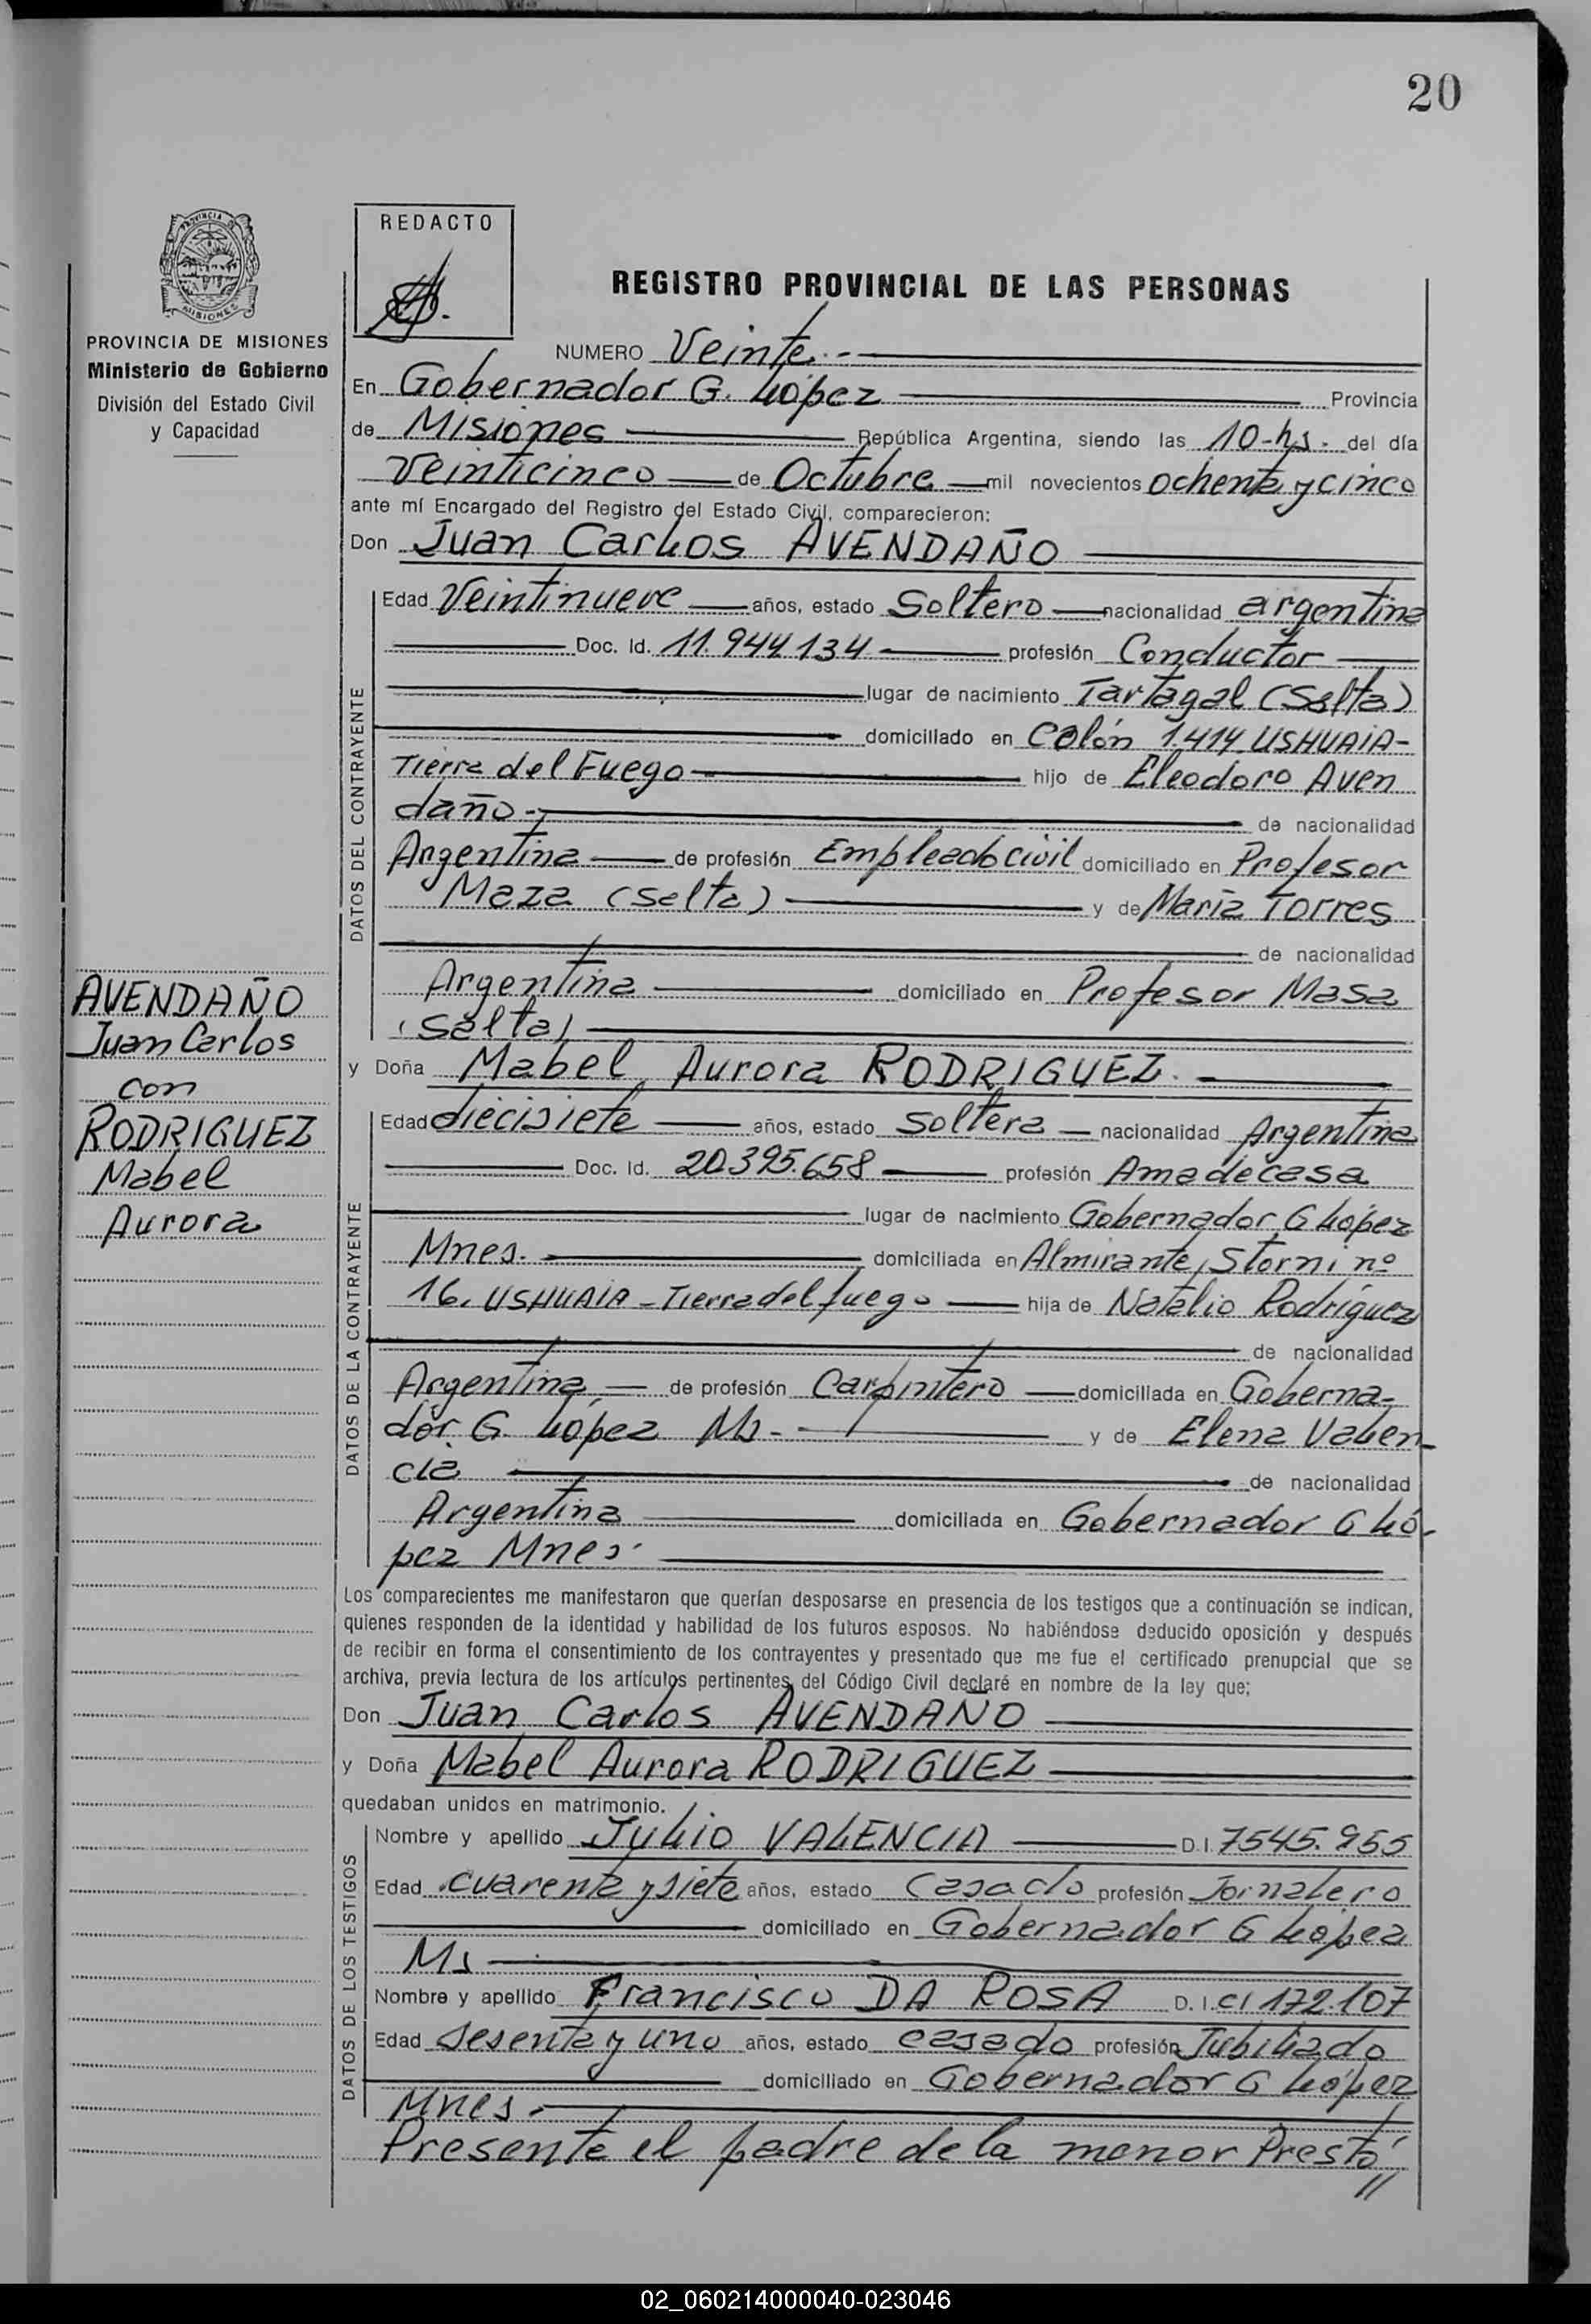 20
PROVINCIA DE MISIONES
Ministerio de Gobierno
División del Estado Civil
y Capacidad
AVENDAÑO
Juan Carlos
con
RODRIGUEZ
Mabel
Aurora
REDACTO
REGISTRO PROVINCIAL DE LAS PERSONAS
NUMERO Veinte.-
En Gobernador G. López Provincia
de Misiones República Argentina, siendo las 10-hs. del día
Veinticinco de Octubre mil novecientos ochenta y cinco
ante mí Encargado del Registro del Estado Civil, comparecieron:
Don Juan Carlos AVENDAÑO
DATOS DEL CONTRAYENTE
Edad Veintinueve años, estado Soltero nacionalidad argentina
Doc. Id. 11.944.134 profesión Conductor
lugar de nacimiento Tartagal (Salta)
domiciliado en Colón 1.414 USHUAIA-
Tierra del Fuego hijo de Eleodoro Aven
daño- de nacionalidad
Argentina de profesión Empleado civil domiciliado en Profesor
Maza (Salta) y de María Torres
de nacionalidad
Argentina domiciliado en Profesor Masa
(Salta)
y Doña Mabel Aurora RODRIGUEZ.
DATOS DE LA CONTRAYENTE
Edad diecisiete años, estado Soltera nacionalidad Argentina
Doc. Id. 20.395.658 profesión Ama de casa
lugar de nacimiento Gobernador G López
Mnes. domiciliada en Almirante Storni nº
16. USHUAIA - Tierra del fuego hija de Natalio Rodríguez
de nacionalidad
Argentina de profesión Carpintero domiciliada en Goberna-
dor G. López Ms- y de Elena Valen-
cia de nacionalidad
Argentina domiciliada en Gobernador G Ló-
pez Mnes.
Los comparecientes me manifestaron que querían desposarse en presencia de los testigos que a continuación se indican,
quienes responden de la identidad y habilidad de los futuros esposos. No habiéndose deducido oposición y después
de recibir en forma el consentimiento de los contrayentes y presentado que me fue el certificado prenupcial que se
archiva, previa lectura de los artículos pertinentes del Código Civil declaré en nombre de la ley que:
Don Juan Carlos AVENDAÑO
y Doña Mabel Aurora RODRIGUEZ
quedaban unidos en matrimonio.
DATOS DE LOS TESTIGOS
Nombre y apellido Julio VALENCIA D.I. 7545.955
Edad cuarenta y siete años, estado Casado profesión Jornalero
domiciliado en Gobernador G López
Ms
Nombre y apellido Francisco DA ROSA D.I. CI 172.107
Edad Sesenta y uno años, estado casado profesión Jubilado
domiciliado en Gobernador G López
Mnes.
Presente el padre de la menor Prestó//
02_060214000040-023046